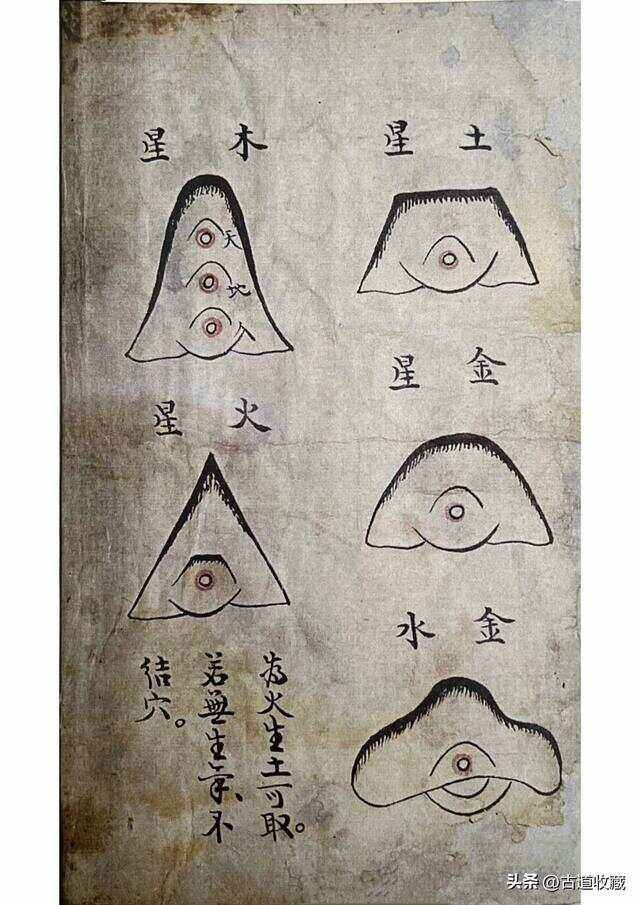 土星
金星
金水
木星
天
地
人
火星
為火生土可取。
若無生氣、不
結穴。
头条 @古道收藏